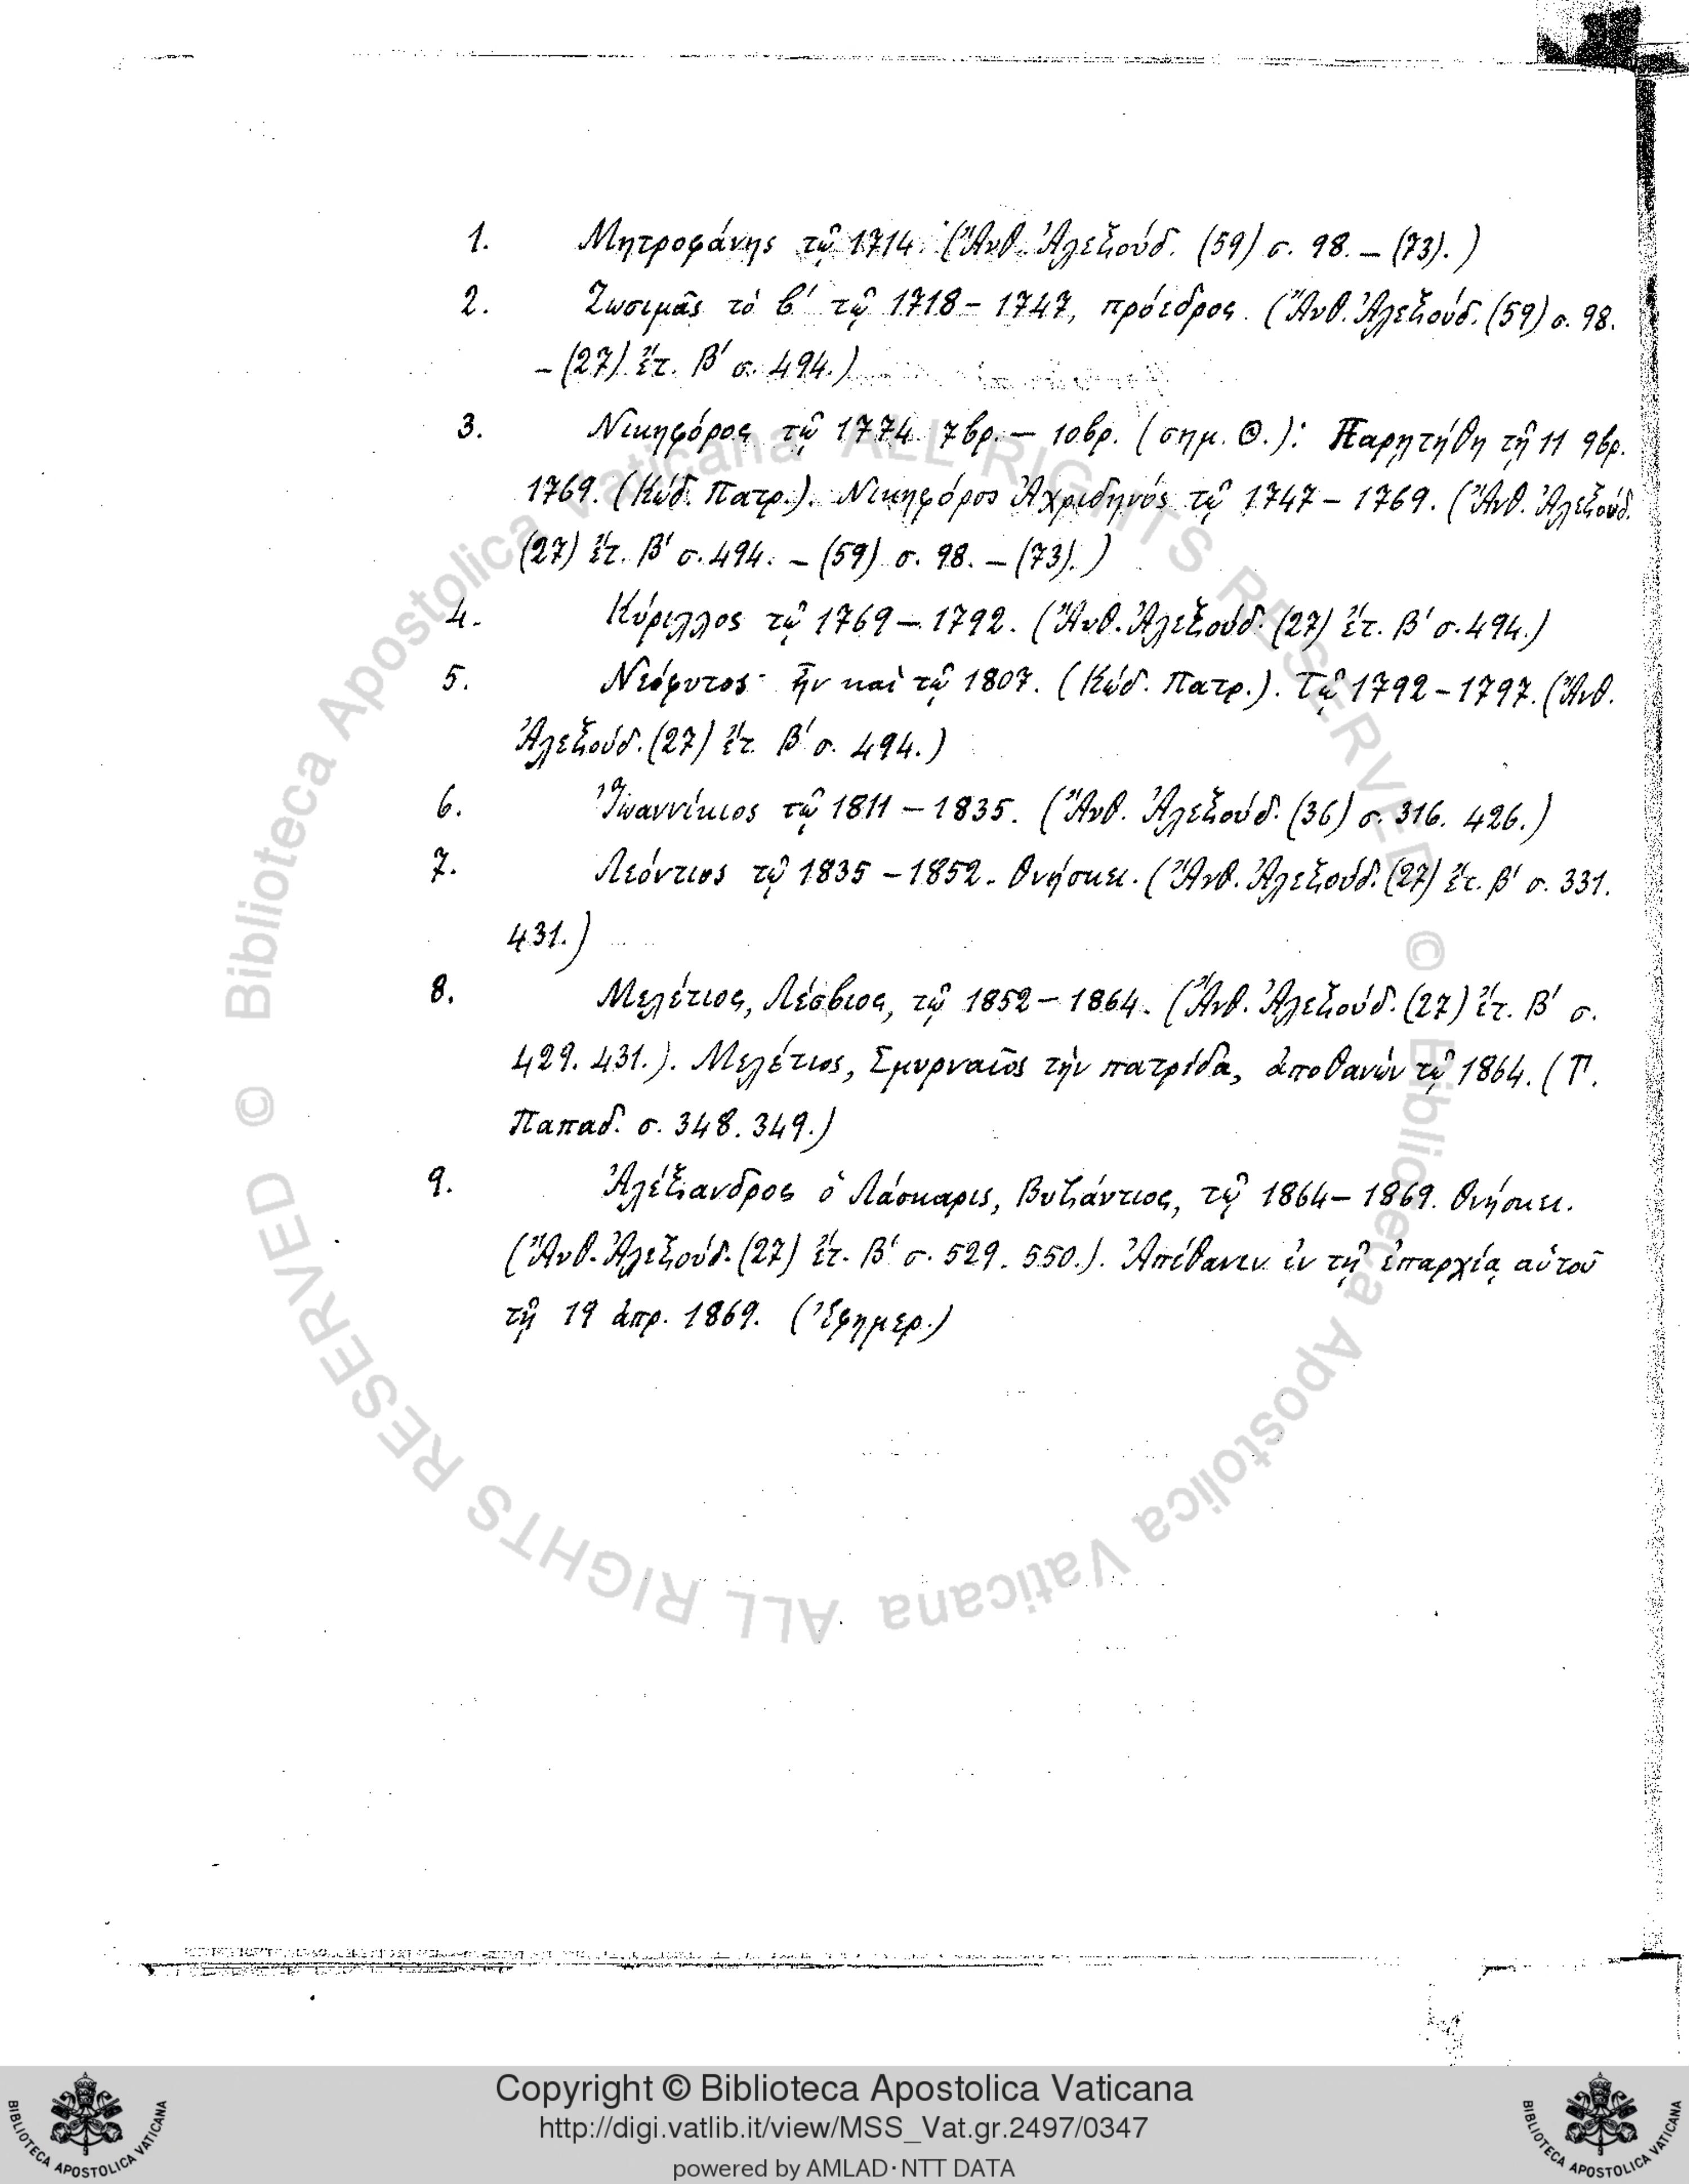 1. Μητροφάνης τῷ 1714. (Ἄνθ. Ἀλεξούδ. (59) σ. 98. – (73).)
2. Ζωσιμᾶς τὸ β' τῷ 1718 – 1747, πρόεδρος. (Ἄνθ. Ἀλεξούδ. (59) σ. 98.
– (27) ἔτ. Β' σ. 494.)
3. Νικηφόρος τῷ 1774 7βρ. – 10βρ. (σημ. Θ.): Παρῃτήθη τῇ 11 9βρ.
1769. (Κώδ. Πατρ.). Νικηφόρος Ἀχριδηνός τῷ 1747 – 1769. (Ἄνθ. Ἀλεξούδ.
(27) ἔτ. Β' σ. 494. – (59) σ. 98. – (73).)
4. Κύριλλος τῷ 1769 – 1792. (Ἄνθ. Ἀλεξούδ. (27) ἔτ. Β' σ. 494.)
5. Νεόφυτος· ἦν καὶ τῷ 1807. (Κώδ. Πατρ.). Τῷ 1792 – 1797. (Ἄνθ.
Ἀλεξούδ. (27) ἔτ. Β' σ. 494.)
6. Ἰωαννίκιος τῷ 1811 – 1835. (Ἄνθ. Ἀλεξούδ. (36) σ. 316. 426.)
7. Λεόντιος τῷ 1835 – 1852. Θνήσκει. (Ἄνθ. Ἀλεξούδ. (27) ἔτ. β' σ. 331.
431.)
8. Μελέτιος, Λέσβιος, τῷ 1852 – 1864. (Ἄνθ. Ἀλεξούδ. (27) ἔτ. Β' σ.
429. 431.). Μελέτιος, Σμυρναῖος τὴν πατρίδα, ἀποθανὼν τῷ 1864. (Γ.
Παπαδ. σ. 348. 349.)
9. Ἀλέξανδρος ὁ Λάσκαρις, Βυζάντιος, τῷ 1864 – 1869. Θνήσκει.
(Ἄνθ. Ἀλεξούδ. (27) ἔτ. Β' σ. 529. 550.). Ἀπέθανεν ἐν τῇ ἐπαρχίᾳ αὑτοῦ
τῇ 19 ἀπρ. 1869. (Ἐφημερ.)
© Biblioteca Apostolica Vaticana ALL RIGHTS RESERVED © Biblioteca Apostolica Vaticana ALL RIGHTS RESERVED
Copyright © Biblioteca Apostolica Vaticana
http://digi.vatlib.it/view/MSS_Vat.gr.2497/0347
powered by AMLAD·NTT DATA
BIBLIOTECA APOSTOLICA VATICANA
BIBLIOTECA APOSTOLICA VATICANA